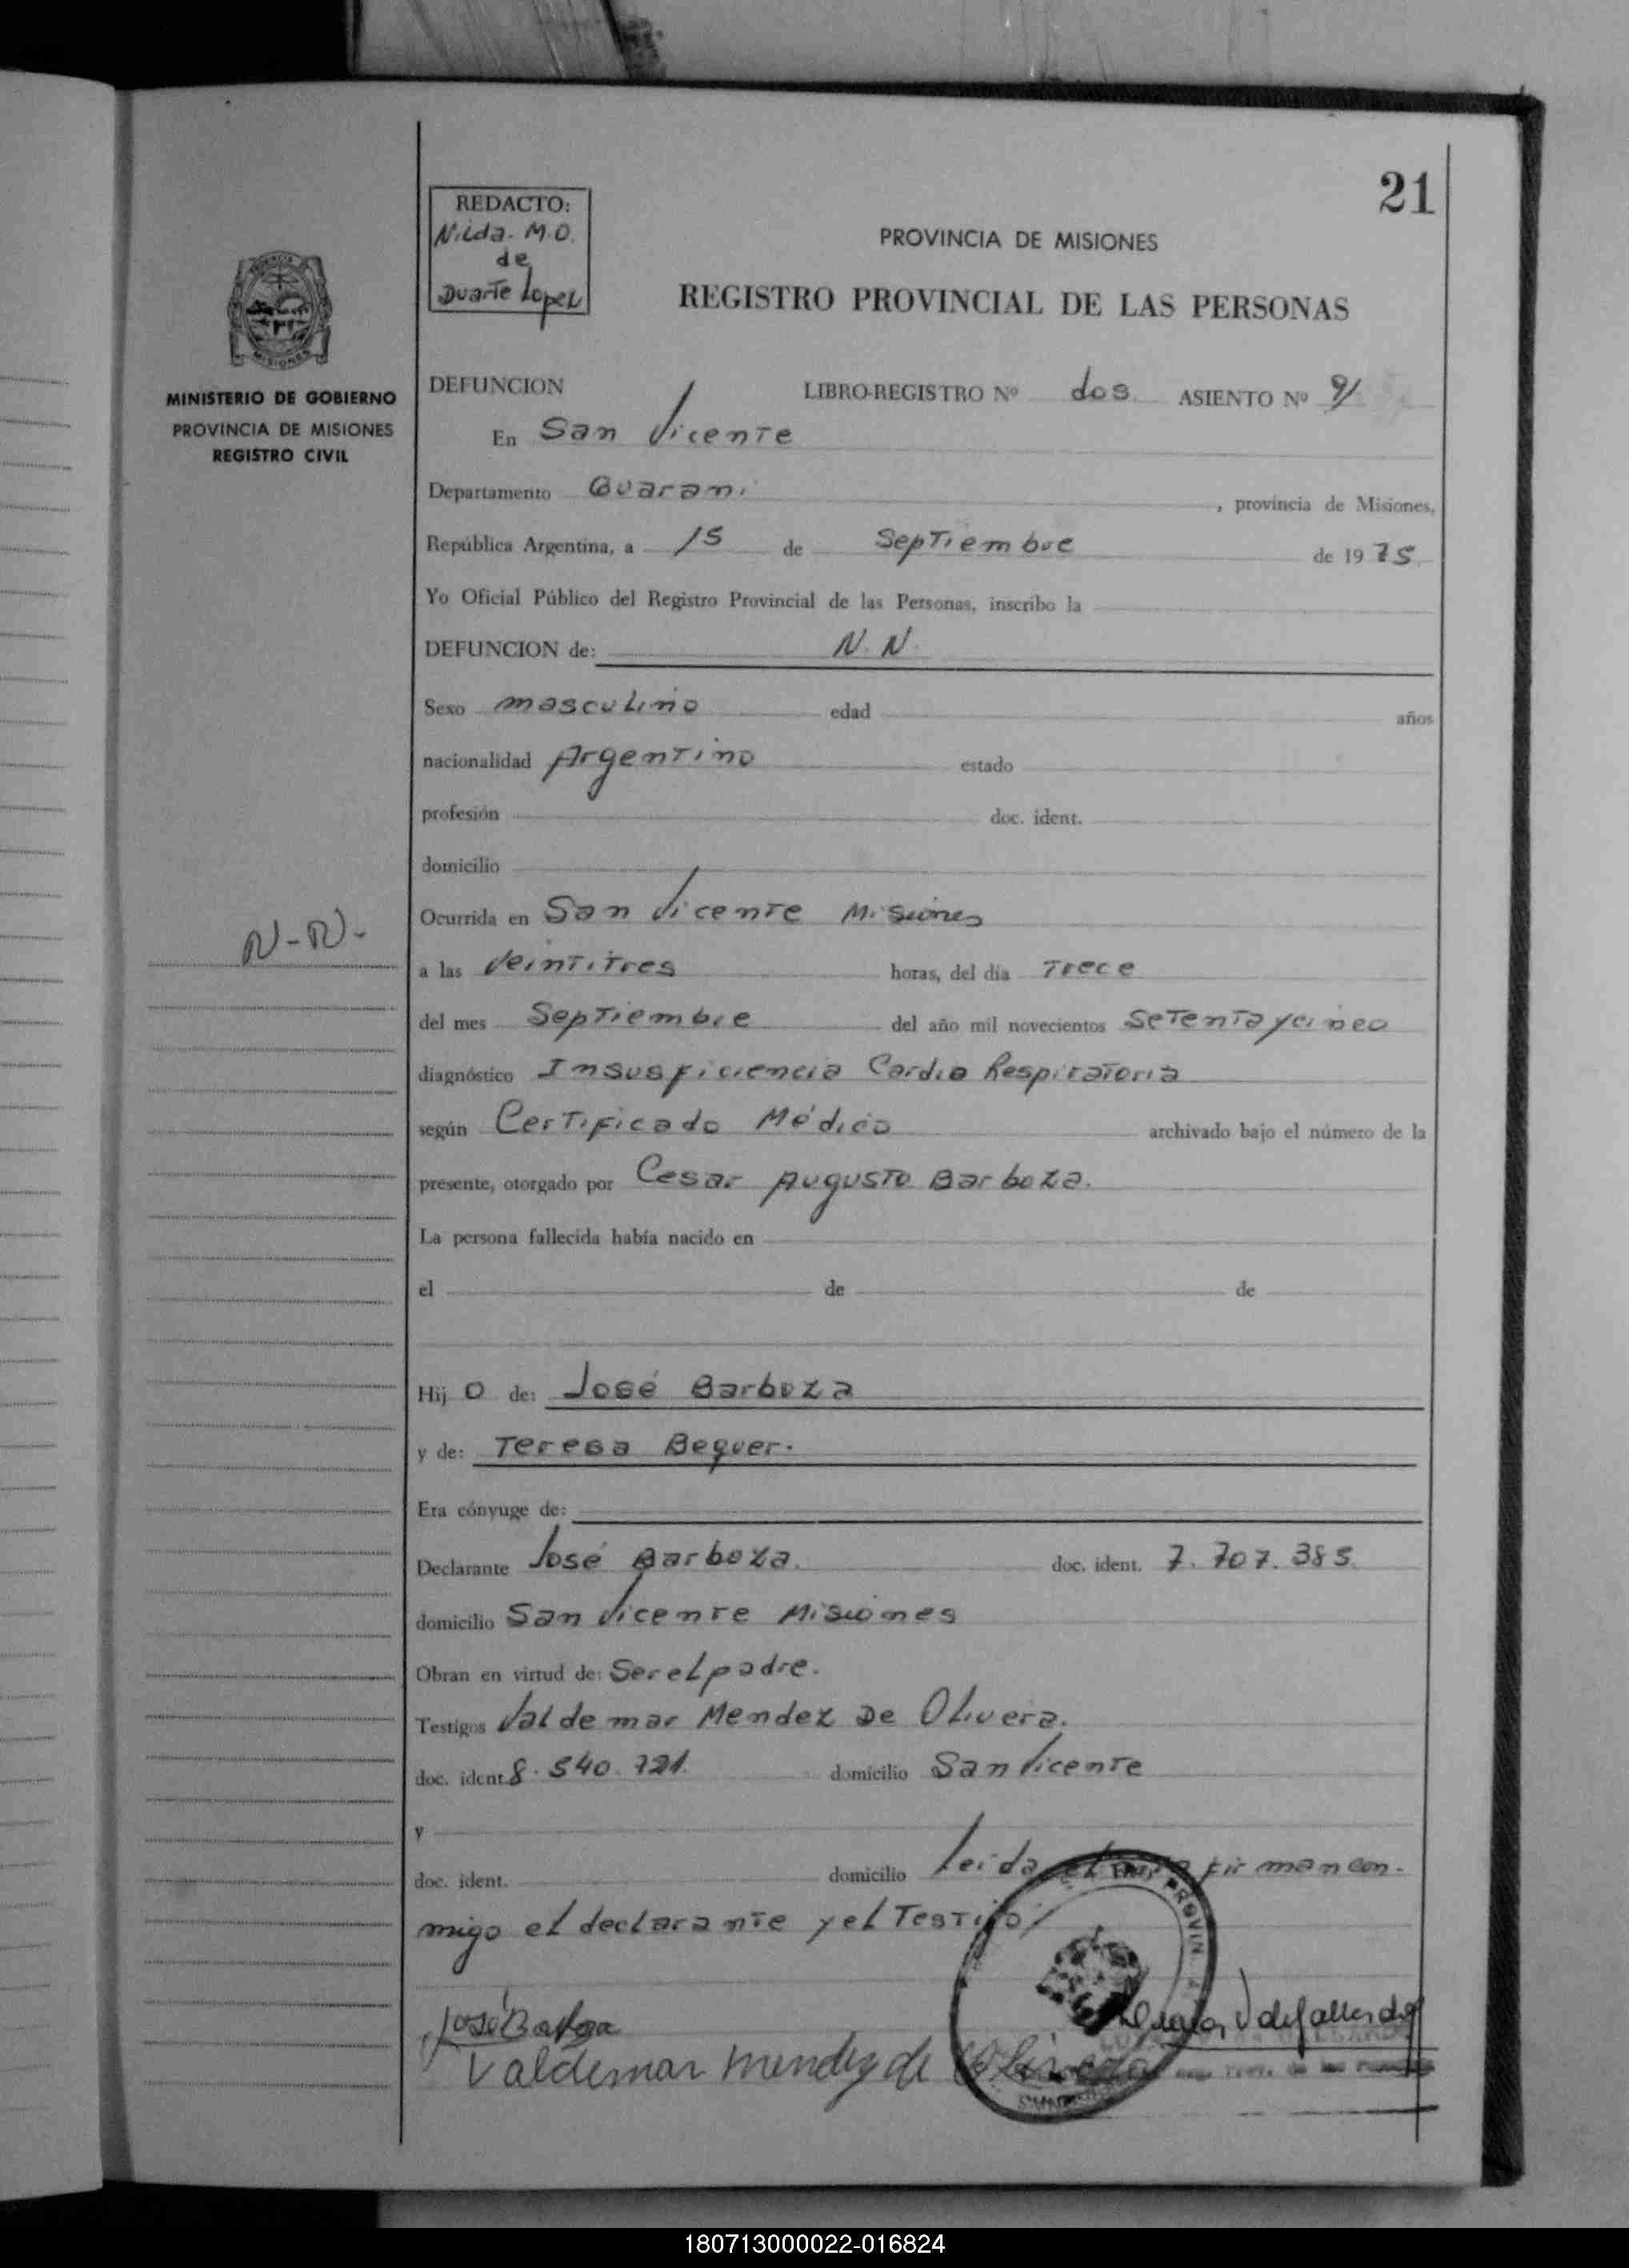 21
REDACTO:
Nilda. M.O.
de
Duarte Lopez
PROVINCIA DE MISIONES
REGISTRO PROVINCIAL DE LAS PERSONAS
MINISTERIO DE GOBIERNO
PROVINCIA DE MISIONES
REGISTRO CIVIL
DEFUNCION LIBRO-REGISTRO Nº dos ASIENTO Nº 91
En San Vicente
Departamento Guarani , provincia de Misiones,
República Argentina, a 15 de Septiembre de 1975
Yo Oficial Público del Registro Provincial de las Personas, inscribo la
DEFUNCION de: N. N.
Sexo masculino edad años
nacionalidad Argentino estado
profesión doc. ident.
domicilio
Ocurrida en San Vicente Misiones
N-N-
a las Veintitres horas, del día Trece
del mes Septiembre del año mil novecientos Setenta y cinco
diagnóstico Insusficiencia Cardio Respiratoria
según Certificado Médico archivado bajo el número de la
presente, otorgado por Cesar Augusto Barboza.
La persona fallecida había nacido en
el de de
Hij o de: José Barboza
y de: Teresa Bequer.
Era cónyuge de:
Declarante José Barboza. doc. ident. 7.707.385
domicilio San Vicente Misiones
Obran en virtud de: Ser el padre.
Testigos Valdemar Mendez De Olivera.
doc. ident. 8.540.721. domicilio San Vicente
y
doc. ident. domicilio Leida el firman con-
migo el declarante y el Testigo
José Barboza
Valdemar mendez de Olivera
180713000022-016824